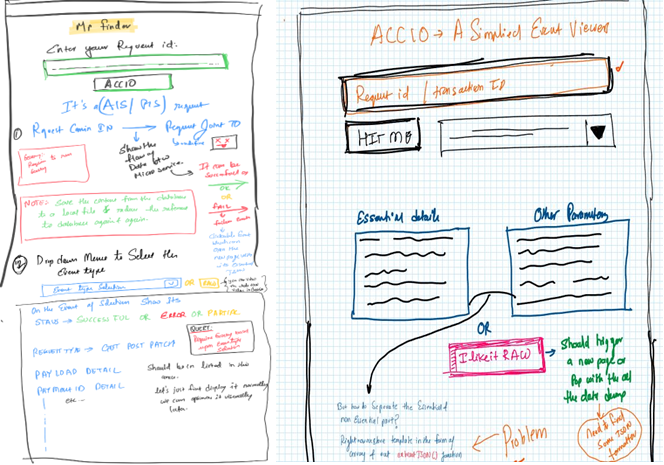 Mr Finder
Enter your Request id:
ACCIO
It's a (AIS/ PIS) request
① Request Comin IN → Request Goint TO
Show the
flow of
Data btw
Micro service.
It can be
Successful
OR
OR
FAIL
NOTE: Save the content from the database
to a local file &
to database again & again.
② Drop down Menu to Select the
Event type
Event Type Selection
OR
RAW
On the Event of Selection Show Its
STATUS → SUCCESSFUL OR ERROR OR PARTIAL
QUERY:
REQUEST TYPE → GET POST PATCH
PAYLOAD DETAIL
Should be listed in the
area.
PAYMENT ID DETAIL
Let's just first display it normally
we can optimise it visually
later.
etc...
ACCIO → A Simplied Event Viewer
Request id / transaction ID
HIT ME
Essential details
Other Parameters
OR
I like it RAW
Should trigger
a new page or
Pop with the all
the data dump
But how to Separate the Essential &
non Essential part?
Right now have template in the form of
array & not function
Problem
Need to find
Some JSON
formatter